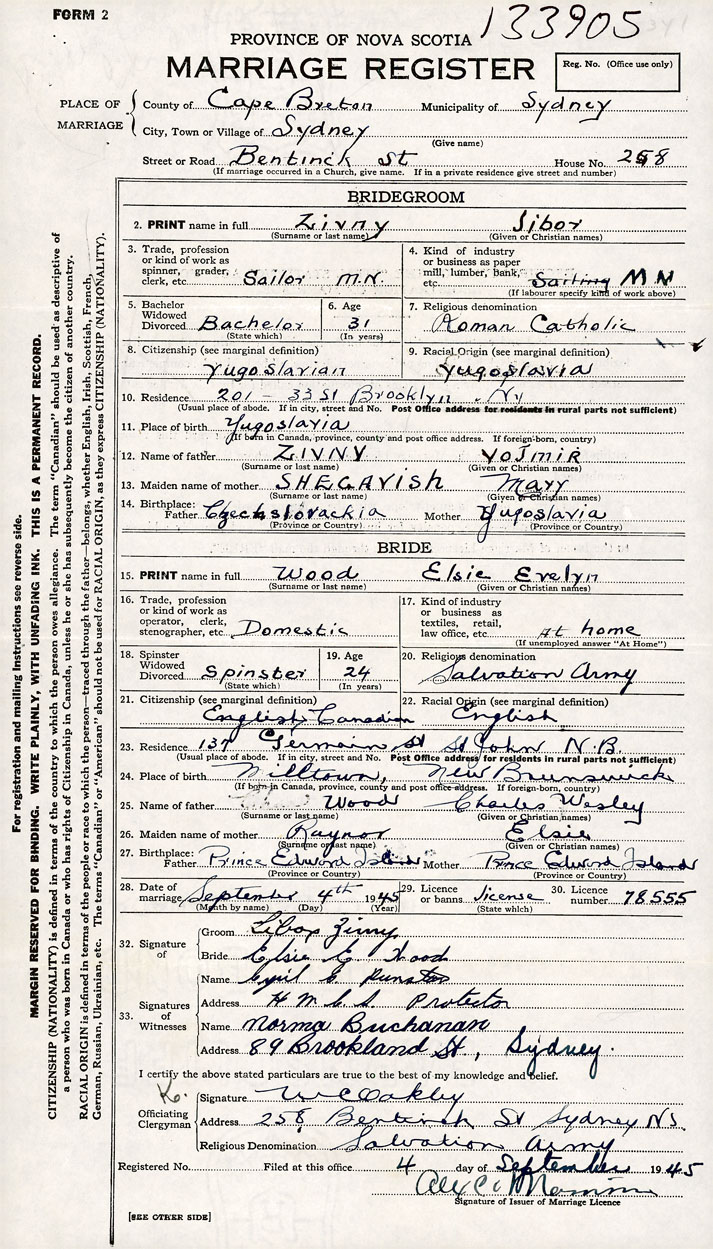 FORM 2
133905
PROVINCE OF NOVA SCOTIA
MARRIAGE REGISTER
Reg. No. (Office use only)
PLACE OF MARRIAGE
County of Cape Breton Municipality of Sydney
City, Town or Village of Sydney
(Give name)
Street or Road Bentinck St House No. 258
(If marriage occurred in a Church, give name. If in a private residence give street and number)
BRIDEGROOM
2. PRINT name in full Zivny Libor
(Surname or last name) (Given or Christian names)
3. Trade, profession or kind of work as spinner, grader, clerk, etc. Sailor M.N.
4. Kind of industry or business as paper mill, lumber, bank, etc. Sailing MN
(If labourer specify kind of work above)
5. Bachelor Widowed Divorced Bachelor
(State which)
6. Age 31
(In years)
7. Religious denomination
Roman Catholic
8. Citizenship (see marginal definition)
Yugoslavian
9. Racial Origin (see marginal definition)
Yugoslavia
10. Residence 201 - 33 St Brooklyn. Ny
(Usual place of abode. If in city, street and No. Post Office address for residents in rural parts not sufficient)
11. Place of birth Yugoslavia
(If born in Canada, province, county and post office address. If foreign-born, country)
12. Name of father ZIVNY VOJMIR
(Surname or last name) (Given or Christian names)
13. Maiden name of mother SHEGAVISH Mary
(Surname or last name) (Given or Christian names)
14. Birthplace: Father Czechslovackia Mother Yugoslavia
(Province or Country) (Province or Country)
BRIDE
15. PRINT name in full Wood Elsie Evelyn
(Surname or last name) (Given or Christian names)
16. Trade, profession or kind of work as operator, clerk, stenographer, etc. Domestic
17. Kind of industry or business as textiles, retail, law office, etc. At home
(If unemployed answer "At Home")
18. Spinster Widowed Divorced Spinster
(State which)
19. Age 24
(In years)
20. Religious denomination
Salvation Army
21. Citizenship (see marginal definition)
English Canadian
22. Racial Origin (see marginal definition)
English
23. Residence 137 Germain St St John N.B.
(Usual place of abode. If in city, street and No. Post Office address for residents in rural parts not sufficient)
24. Place of birth Milltown, New Brunswick
(If born in Canada, province, county and post office address. If foreign-born, country)
25. Name of father Wood Charles Wesley
(Surname or last name) (Given or Christian names)
26. Maiden name of mother Raynor Elsie
(Surname or last name) (Given or Christian names)
27. Birthplace: Father Prince Edward Island Mother Prince Edward Island
(Province or Country) (Province or Country)
28. Date of marriage September 4th 1945
(Month by name) (Day) (Year)
29. Licence or banns license
(State which)
30. Licence number 78555
32. Signature of
Groom Libor Zivny
Bride Elsie E Wood
33. Signatures of Witnesses
Name Cyril
Address H M C S Protector
Name Norma Buchanan
Address 89 Brookland St., Sydney.
I certify the above stated particulars are true to the best of my knowledge and belief.
Officiating Clergyman
Signature W C Oakley
Address 258 Bentinck St Sydney NS.
Religious Denomination Salvation Army
Registered No. Filed at this office 4 day of September 1945
Signature of Issuer of Marriage Licence
[SEE OTHER SIDE]
For registration and mailing instructions see reverse side.
MARGIN RESERVED FOR BINDING. WRITE PLAINLY, WITH UNFADING INK. THIS IS A PERMANENT RECORD.
CITIZENSHIP (NATIONALITY) is defined in terms of the country to which the person owes allegiance. The term "Canadian" should be used as descriptive of
a person who was born in Canada or who has rights of Citizenship in Canada, unless he or she has subsequently become the citizen of another country.
RACIAL ORIGIN is defined in terms of the people or race to which the person—traced through the father—belongs, whether English, Irish, Scottish, French,
German, Russian, Ukrainian, etc. The terms "Canadian" or "American" should not be used for RACIAL ORIGIN, as they express CITIZENSHIP (NATIONALITY).